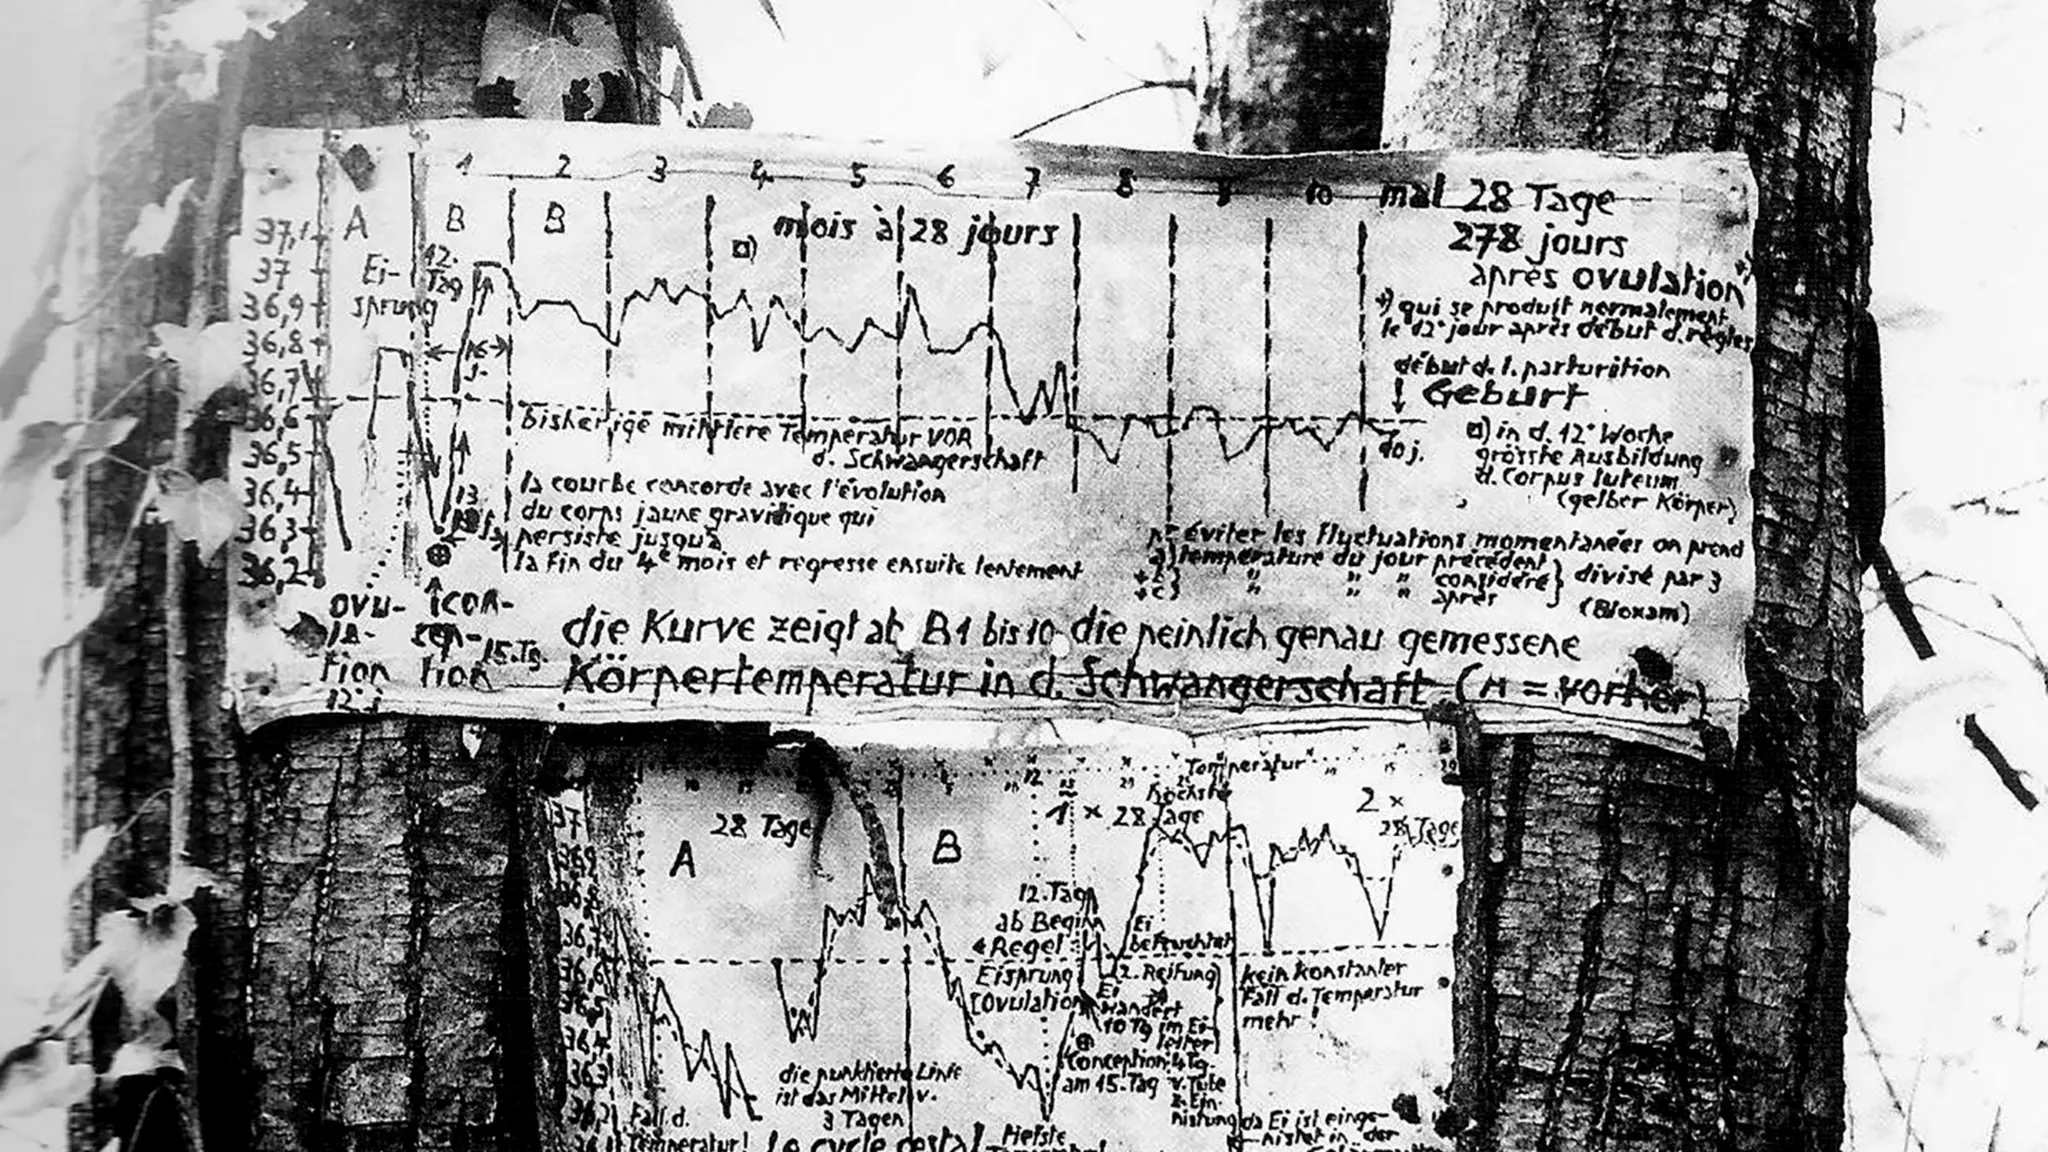 1 2 3 4 5 6 7 8 9 10 mal 28 Tage
A B B
mois à 28 jours
278 jours
après ovulation +)
+) qui se produit normalement
le 12e jour après début d. règles
début d. l. parturition
Geburt
¤) in d. 12e Woche
grösste Ausbildung
d. Corpus luteum
(gelber Körper)
37,1
37
36,9
36,8
36,7
36,6
36,5
36,4
36,3
36,2
Ei-
sprung
12.
Tag
16
J.
¤)
bisherige mittlere Temperatur VOR
d. Schwangerschaft
la courbe concorde avec l'évolution
du corps jaune gravidique qui
persiste jusqu'à
la fin du 4e mois et regresse ensuite lentement
éviter les fluctuations momentanées on prend
a) temperature du jour précédent
+ " " " considéré } divisé par 3
+ c } " " " après
(Bloxam)
ovu-
la-
tion
12. j
con-
cep-
tion
15. Tg.
die Kurve zeigt ab B1 bis 10 die peinlich genau gemessene
Körpertemperatur in d. Schwangerschaft (A = vorher)
Temperatur
höchste
28 Tage
1 x 28 Tage
2 x
28 Tage
A
B
37
36,9
36,6
36,5
36,4
36,3
12. Tag
ab Beginn
Regel
Eisprung
(Ovulation
Ei
befruchtet
(2. Reifung)
Ei
wandert
10 Tg im Ei-
leiter
Conception
am 15. Tag
4 Tg.
v. Tube
z. Ein-
nistung
kein konstanter
Fall d. Temperatur
mehr!
die punktierte Linie
ist das Mittel v.
3 Tagen
Fall d.
Temperatur!
tiefste
da Ei ist einge-
nistet in der